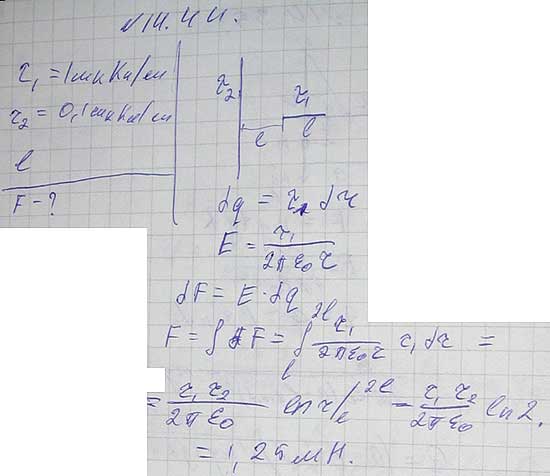 N14.44.
τ₁ = 1мкКл/см
τ₂ = 0,1мкКл/см
l
F - ?
τ₂
τ₁
l l
dq = τ₁ dr
E = τ₁ / 2πε₀r
dF = E · dq
F = ∫ dF = ∫_l^{2l} τ₁ / 2πε₀r τ₁ dr =
= τ₁ τ₂ / 2πε₀ ln r /_l^{2l} = τ₁ τ₂ / 2πε₀ ln 2.
= 1,25 мН.